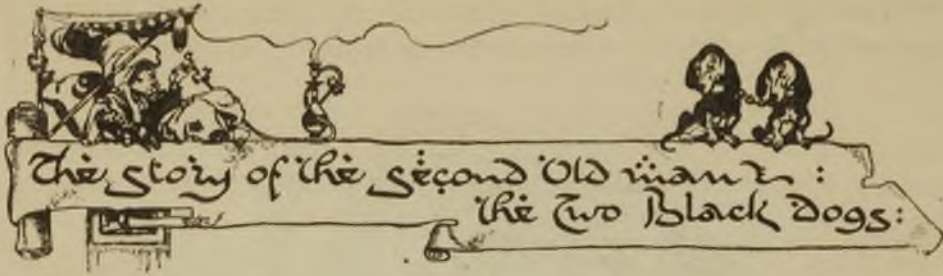 The story of the second Old man &:
the Two Black Dogs: